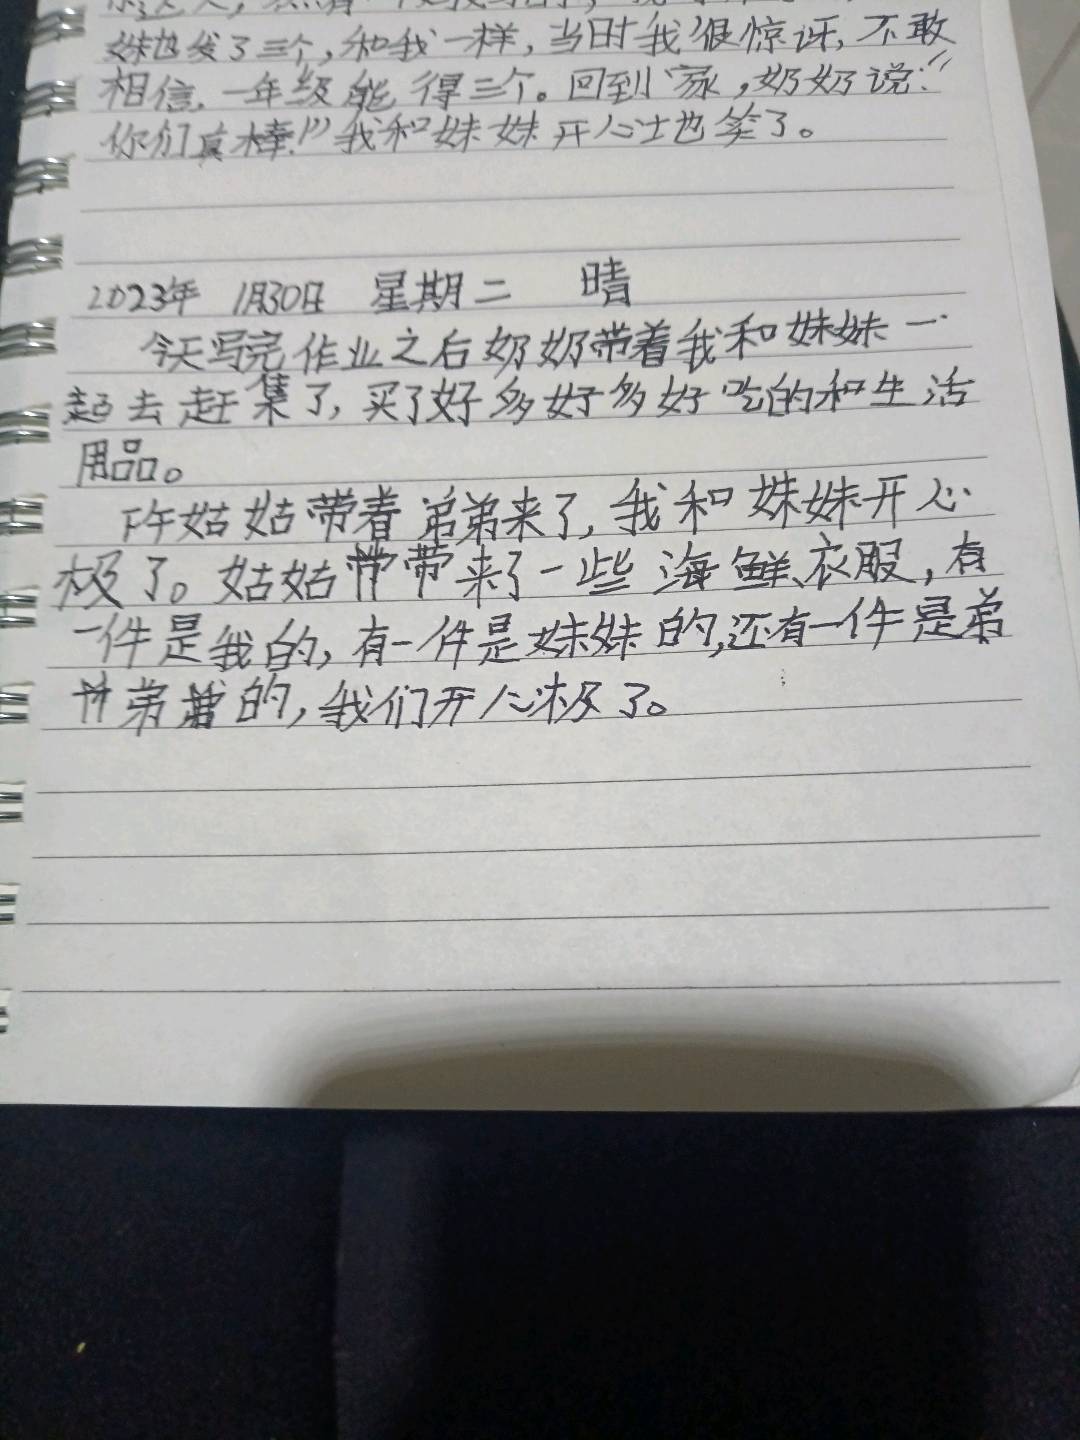 妹也发了三个,和我一样,当时我很惊讶,不敢
相信,一年级能得三个。回到家,奶奶说:“
你们真棒!”我和妹妹开心地笑了。
2023年 1月30日 星期二 晴
今天写完作业之后奶奶带着我和妹妹一
起去赶集了,买了好多好多好吃的和生活
用品。
下午姑姑带着弟弟来了,我和妹妹开心
极了。姑姑带来了一些海鲜、衣服,有
一件是我的,有一件是妹妹的,还有一件是弟
弟的,我们开心极了。